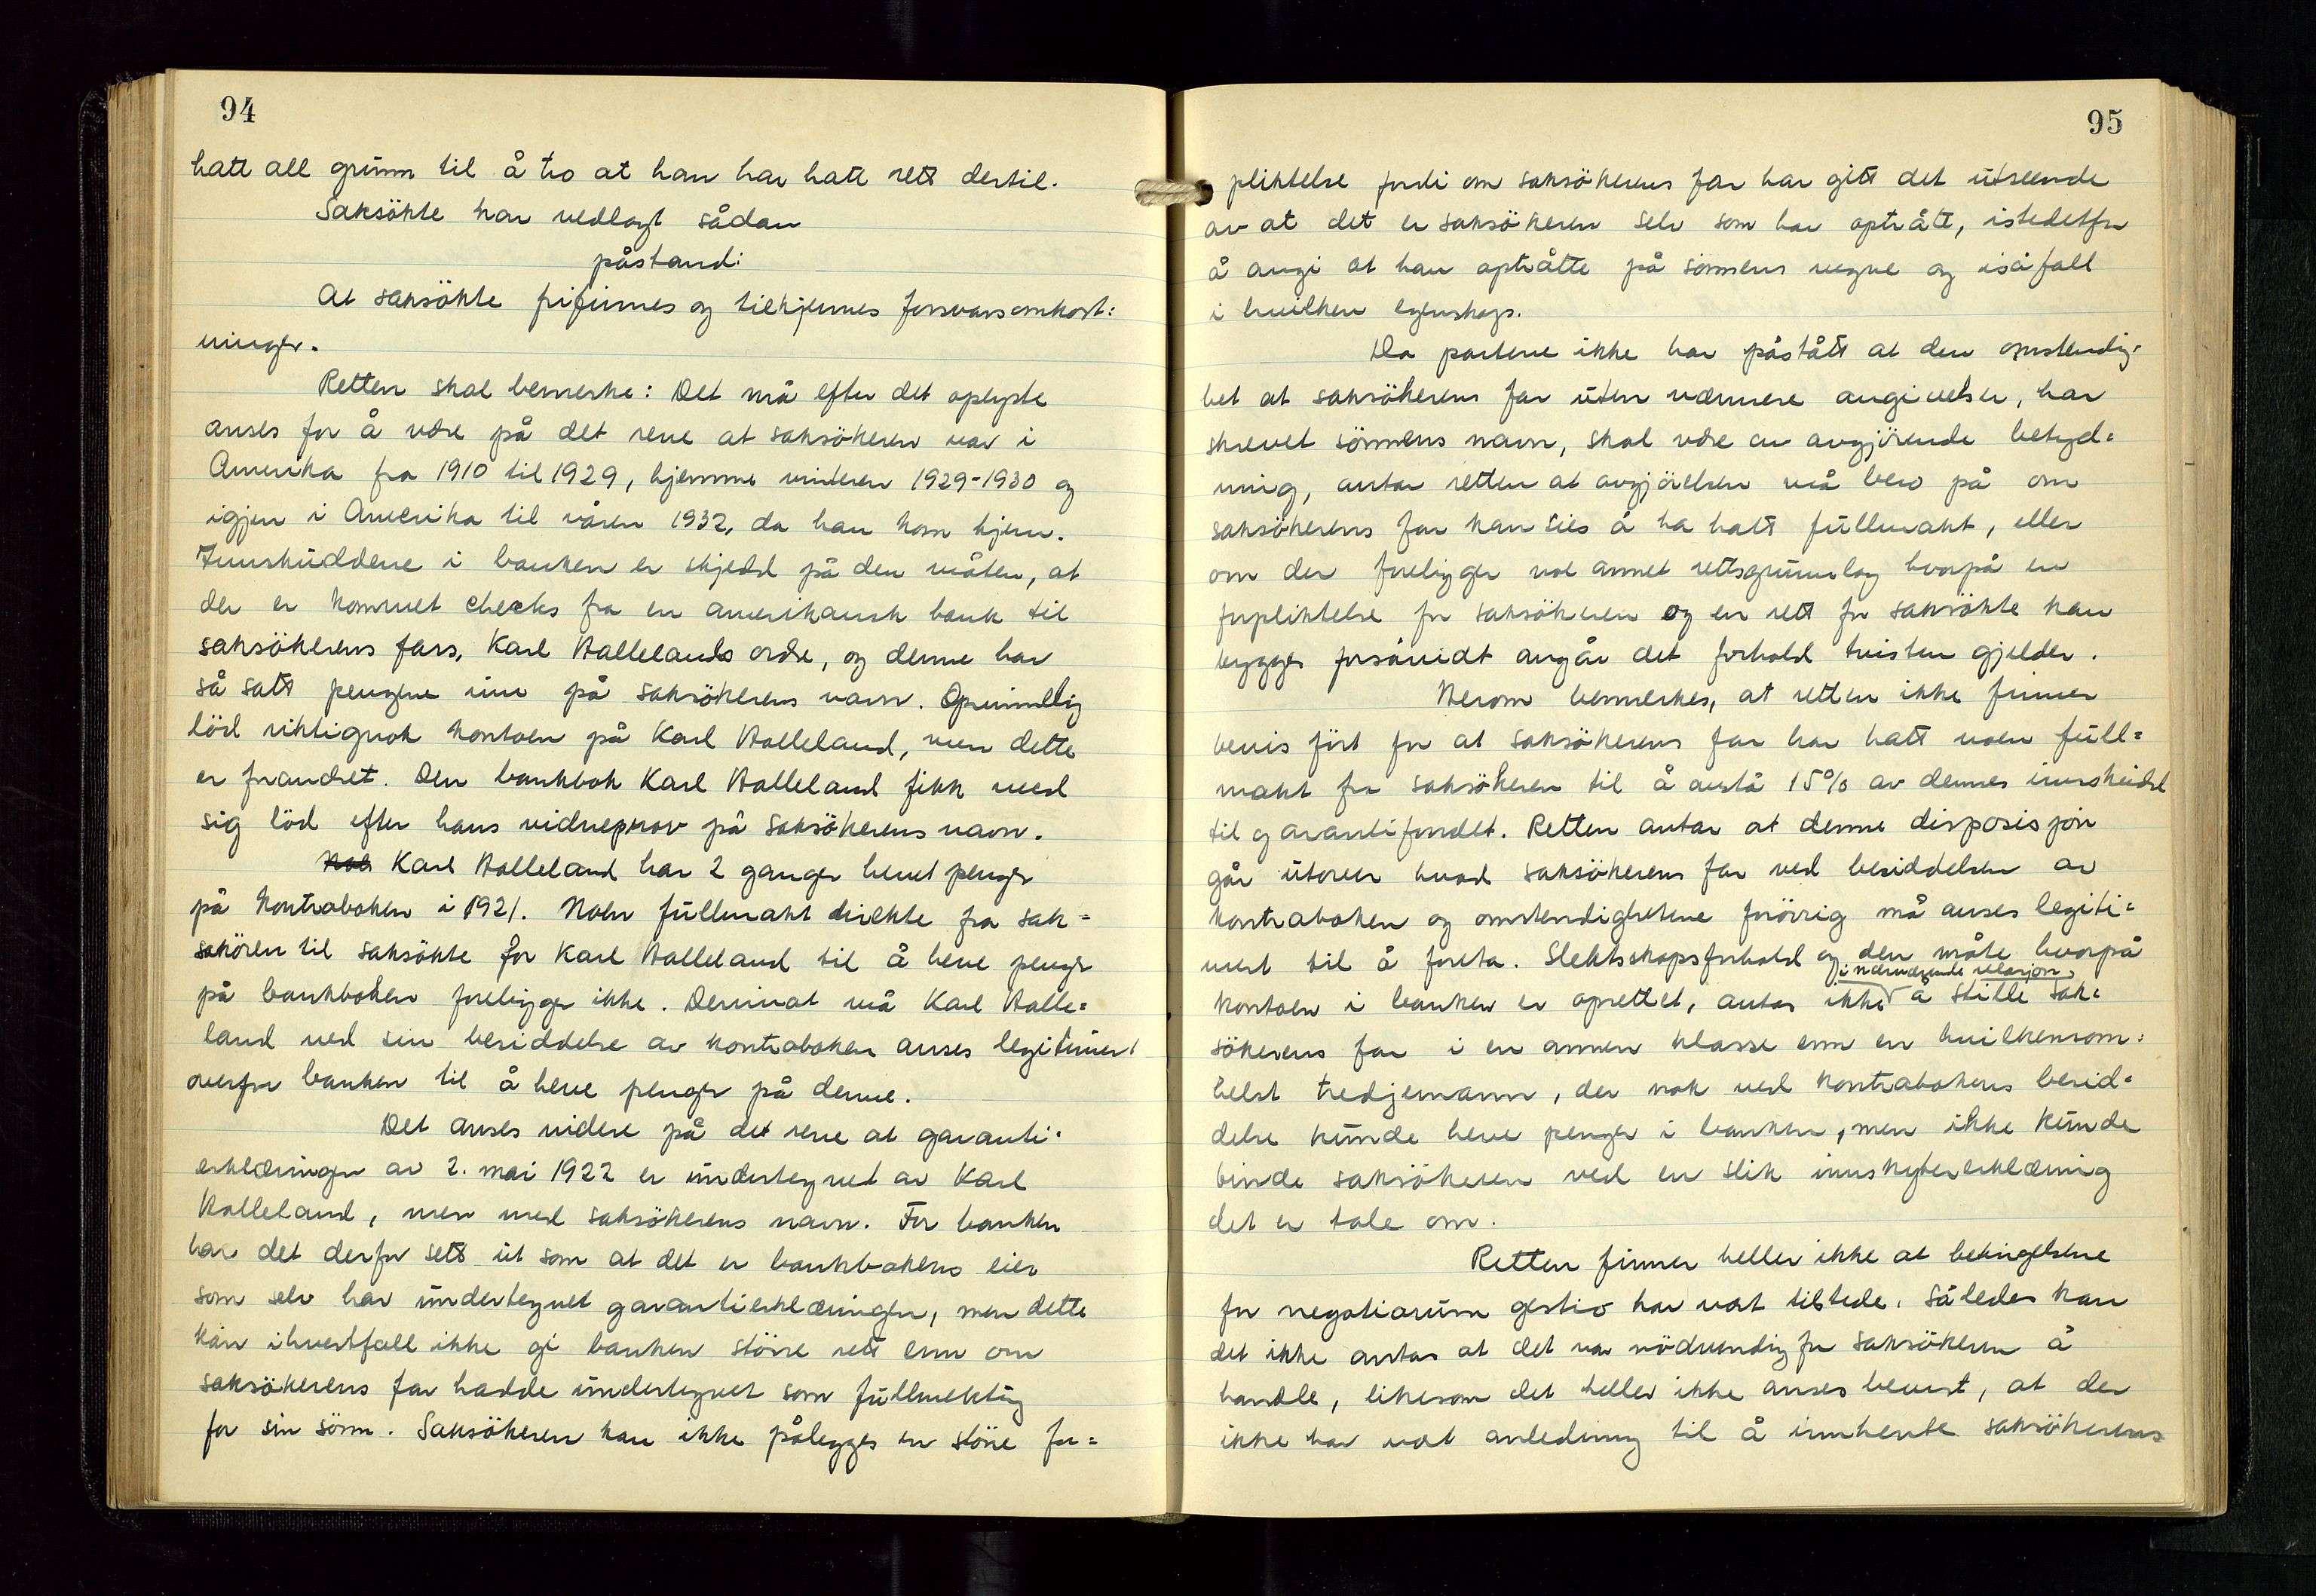 94
hatt all grunn til å tro at han har hatt rett dertil.
Saksökte har nedlagt sådan
påstand:
At saksökte frifinnes og tilkjennes forsvarsomkost=
ninger.
Retten skal bemerke: Det må efter det oplyste
anses for å være på det rene at saksökeren var i
Amerika fra 1910 til 1929, hjemme vinteren 1929-1930 og
igjen i Amerika til våren 1932, da han kom hjem.
Innskuddene i banken er skjedd på den måten, at
der er kommet checks fra en amerikansk bank til
saksökerens fars, Karl Hallelands ordre, og denne har
så satt pengene inn på saksökerens navn. Oprinnelig
löd riktignok kontoen på Karl Halleland, men dette
er forandret. Den bankbok Karl Halleland fikk med
sig löd efter hans vidneprov på saksökerens navn.
Karl Halleland har 2 ganger hevet penger
på kontraboken i 1921. Noen fullmakt direkte fra sak=
sökeren til saksökte for Karl Halleland til å heve penger
på bankboken foreligger ikke. Derimot må Karl Halle=
land ved sin besiddelse av kontraboken anses legitimert
overfor banken til å heve penger på denne.
Det anses videre på det rene at garanti=
erklæringen av 2. mai 1922 er undertegnet av Karl
Halleland, men med saksökerens navn. For banken
har det derfor sett ut som at det er bankbokens eier
som selv har undertegnet garantierklæringen, men dette
kan ihvertfall ikke gi banken större rett enn om
saksökerens far hadde undertegnet som fullmektig
for sin sönn. Saksökeren kan ikke pålegges en större for=
95
pliktelse fordi om saksökerens far har gitt det utseende
av at det er saksökeren selv som har optrått, istedetfor
å angi at han optrådte på sönnens vegne og isåfall
i hvilken egenskap.
Da partene ikke har påstått at den omstendig=
het at saksökerens far uten nærmere angivelse, har
skrevet sönnens navn, skal være av avgjörende betyd=
ning, antar retten at avgjörelsen må bero på om
saksökerens far kan sies å ha hatt fullmakt, eller
om der foreligger noe annet rettsgrunnlag hvorpå en
forpliktelse for saksökeren og en rett for saksökte kan
bygges forsåvidt angår det forhold tvisten gjelder.
Herom bemerkes, at retten ikke finner
bevis fört for at saksökerens far har hatt noen full=
makt fra saksökeren til å avstå 15% av dennes innskudd
til garantifondet. Retten antar at denne disposisjon
går utover hvad saksökerens far ved besiddelsen av
kontraboken og omstendighetene forövrig må anses legiti=
mert til å foreta. Slektskapsforhold og den måte hvorpå
kontoen i banken er oprettet, antas ikke i nærværende relasjon å stille sak=
sökerens far i en annen klasse enn en hvilkensom=
helst tredjemann, der nok ved kontrabokens besid=
delse kunde heve penger i banken, men ikke kunde
binde saksökeren ved en slik innskytererklæring
det er tale om.
Retten finner heller ikke at betingelsene
for negotiorum gestio har vært tilstede. Således kan
det ikke antas at det var nödvendig for saksökeren å
handle, likesom det heller ikke anses bevist, at der
ikke har vært anledning til å innhente saksökerens